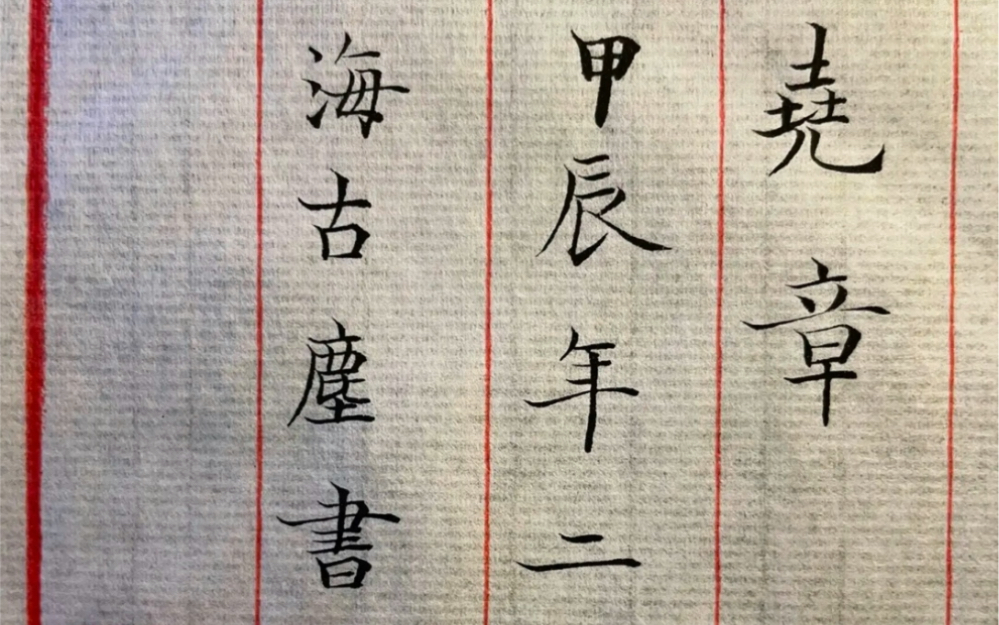 堯章
甲辰年二
海古塵書